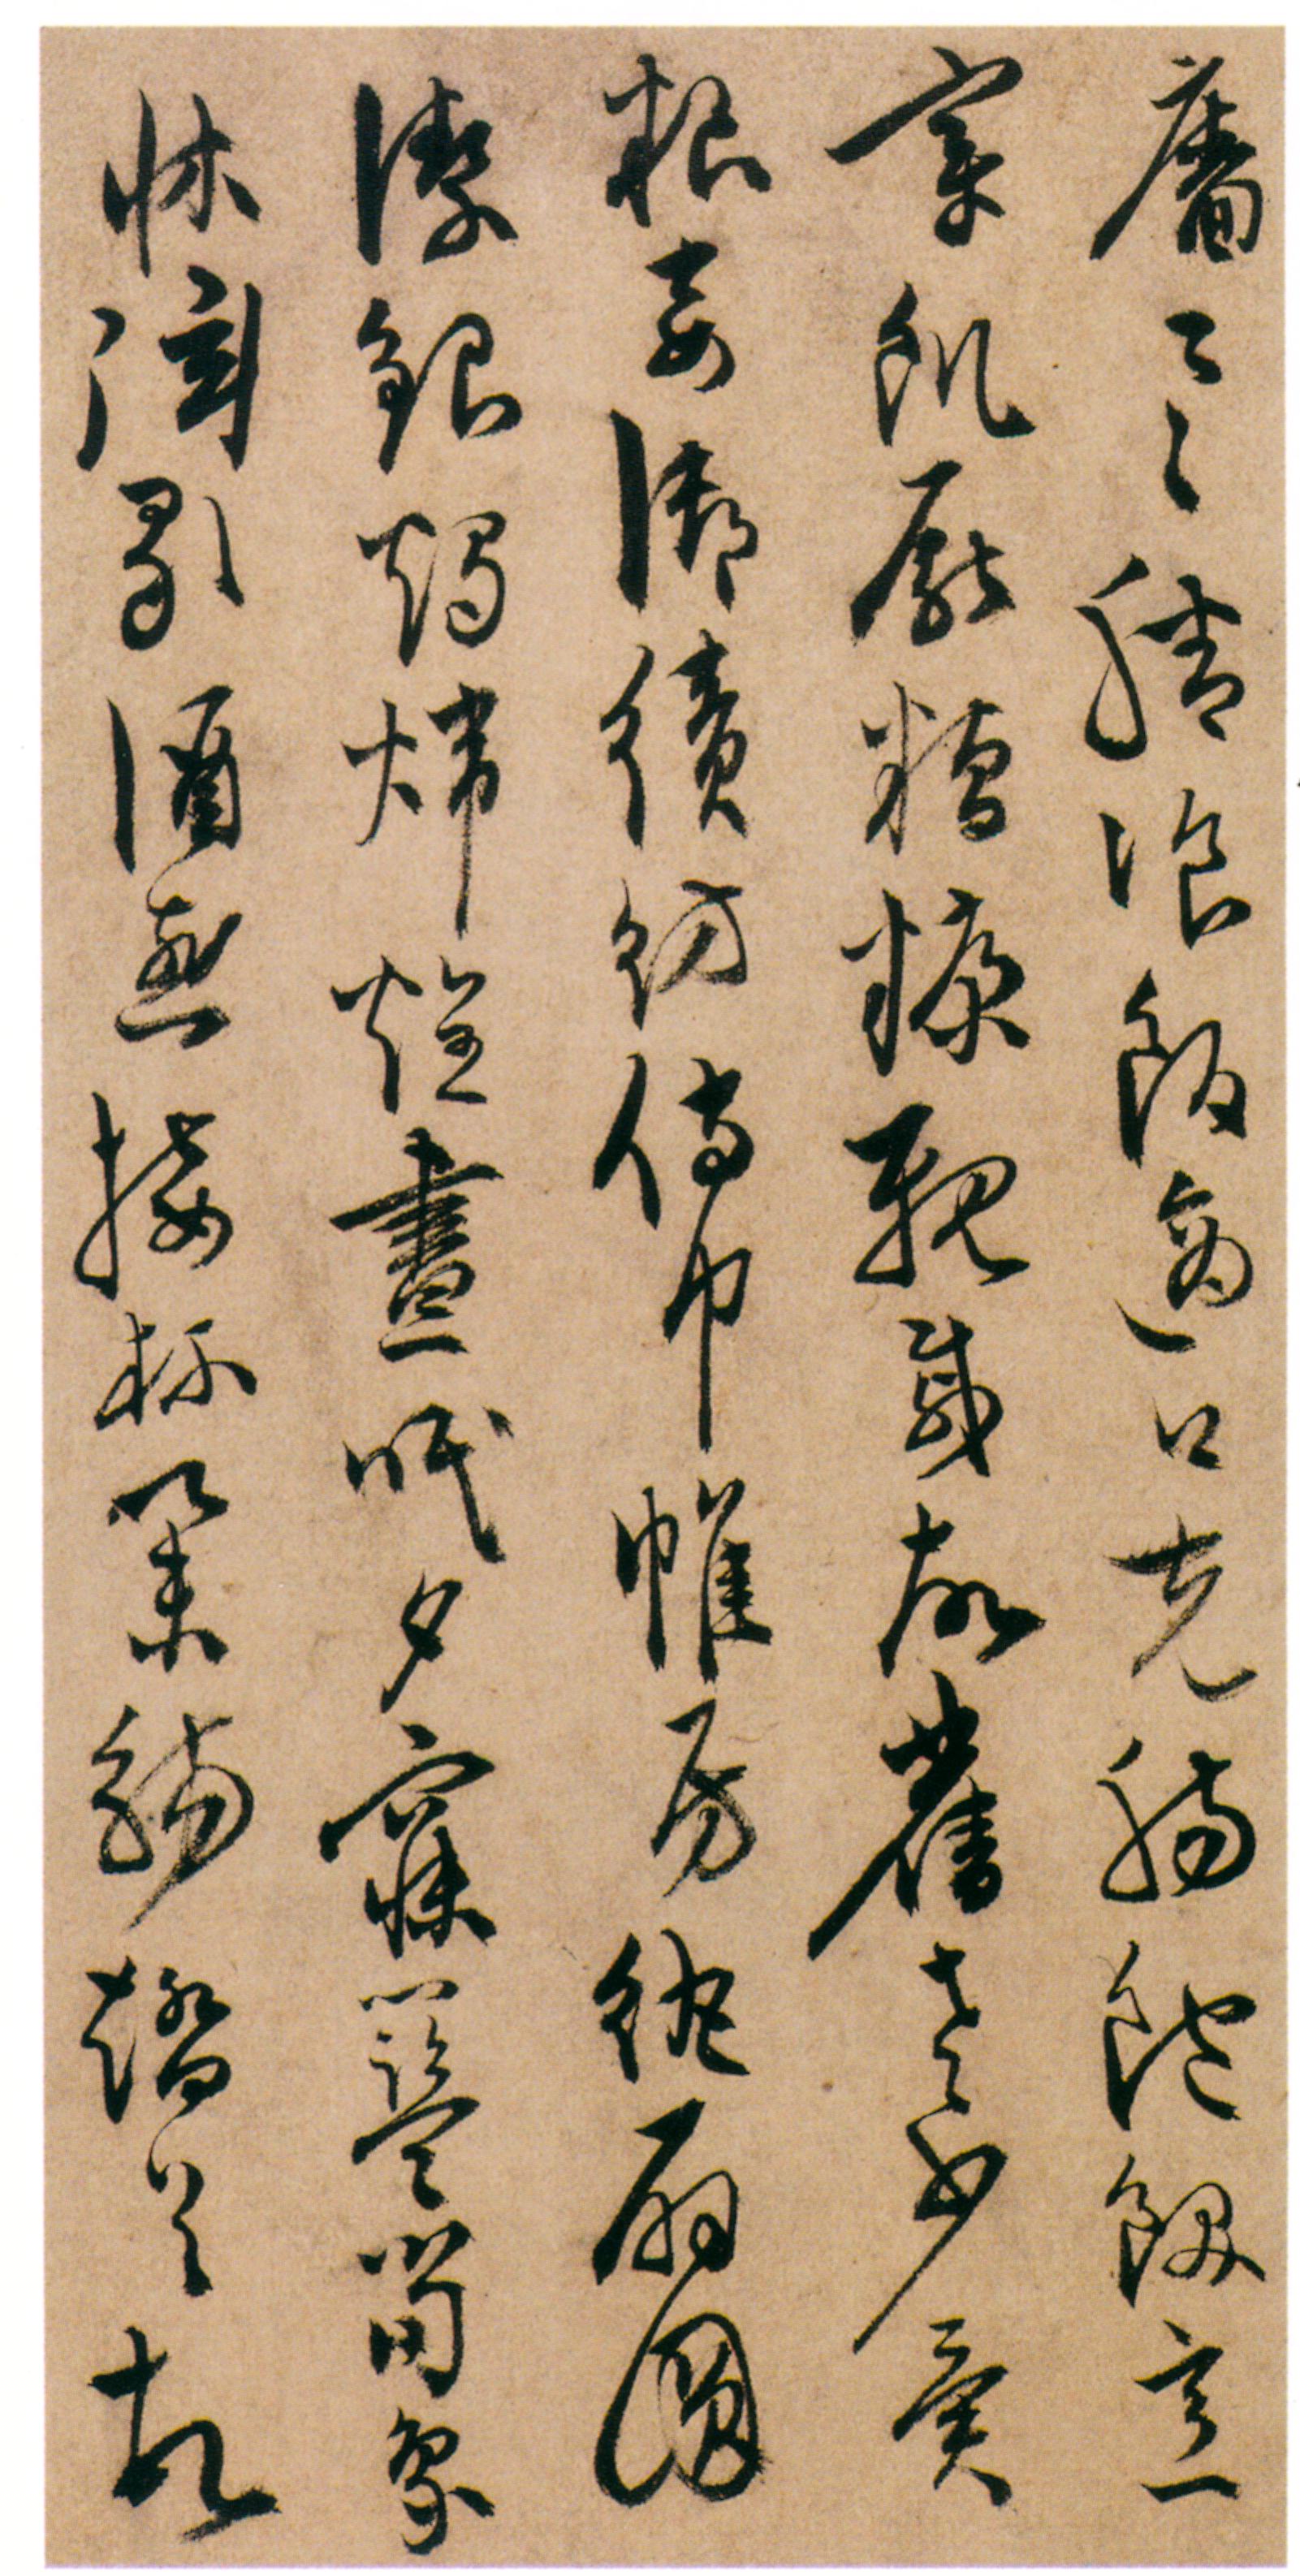 牆具膳飡飯適口充腸飽飫烹
宰飢厭糟糠親戚故舊老少異
粮妾御績紡侍巾帷房紈扇圓
潔銀燭煒煌晝眠夕寐籃笋象
床歌酒接杯舉觴